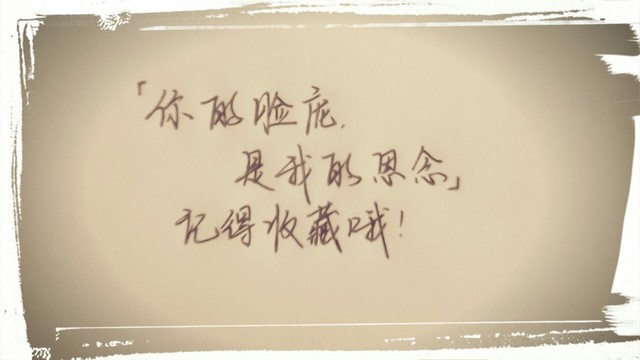 「你的脸庞,
是我的思念」
记得收藏哦!